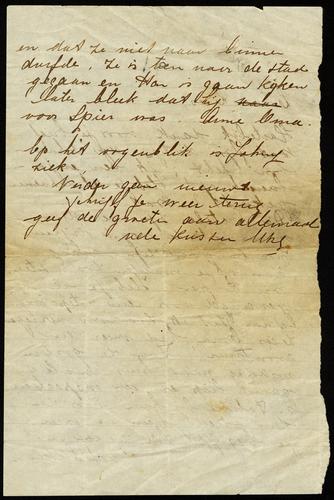 en dat ze niet naar binnen
durfde. Ze is toen naar de stad
gegaan en Han is gaan kijken
later bleek dat hij naar
voor Spier was. Arme Oma.
Op het oogenblik is
ziek
Verder geen nieuws
schrijf je weer terug
geef de groeten aan allemaal
vele kussen